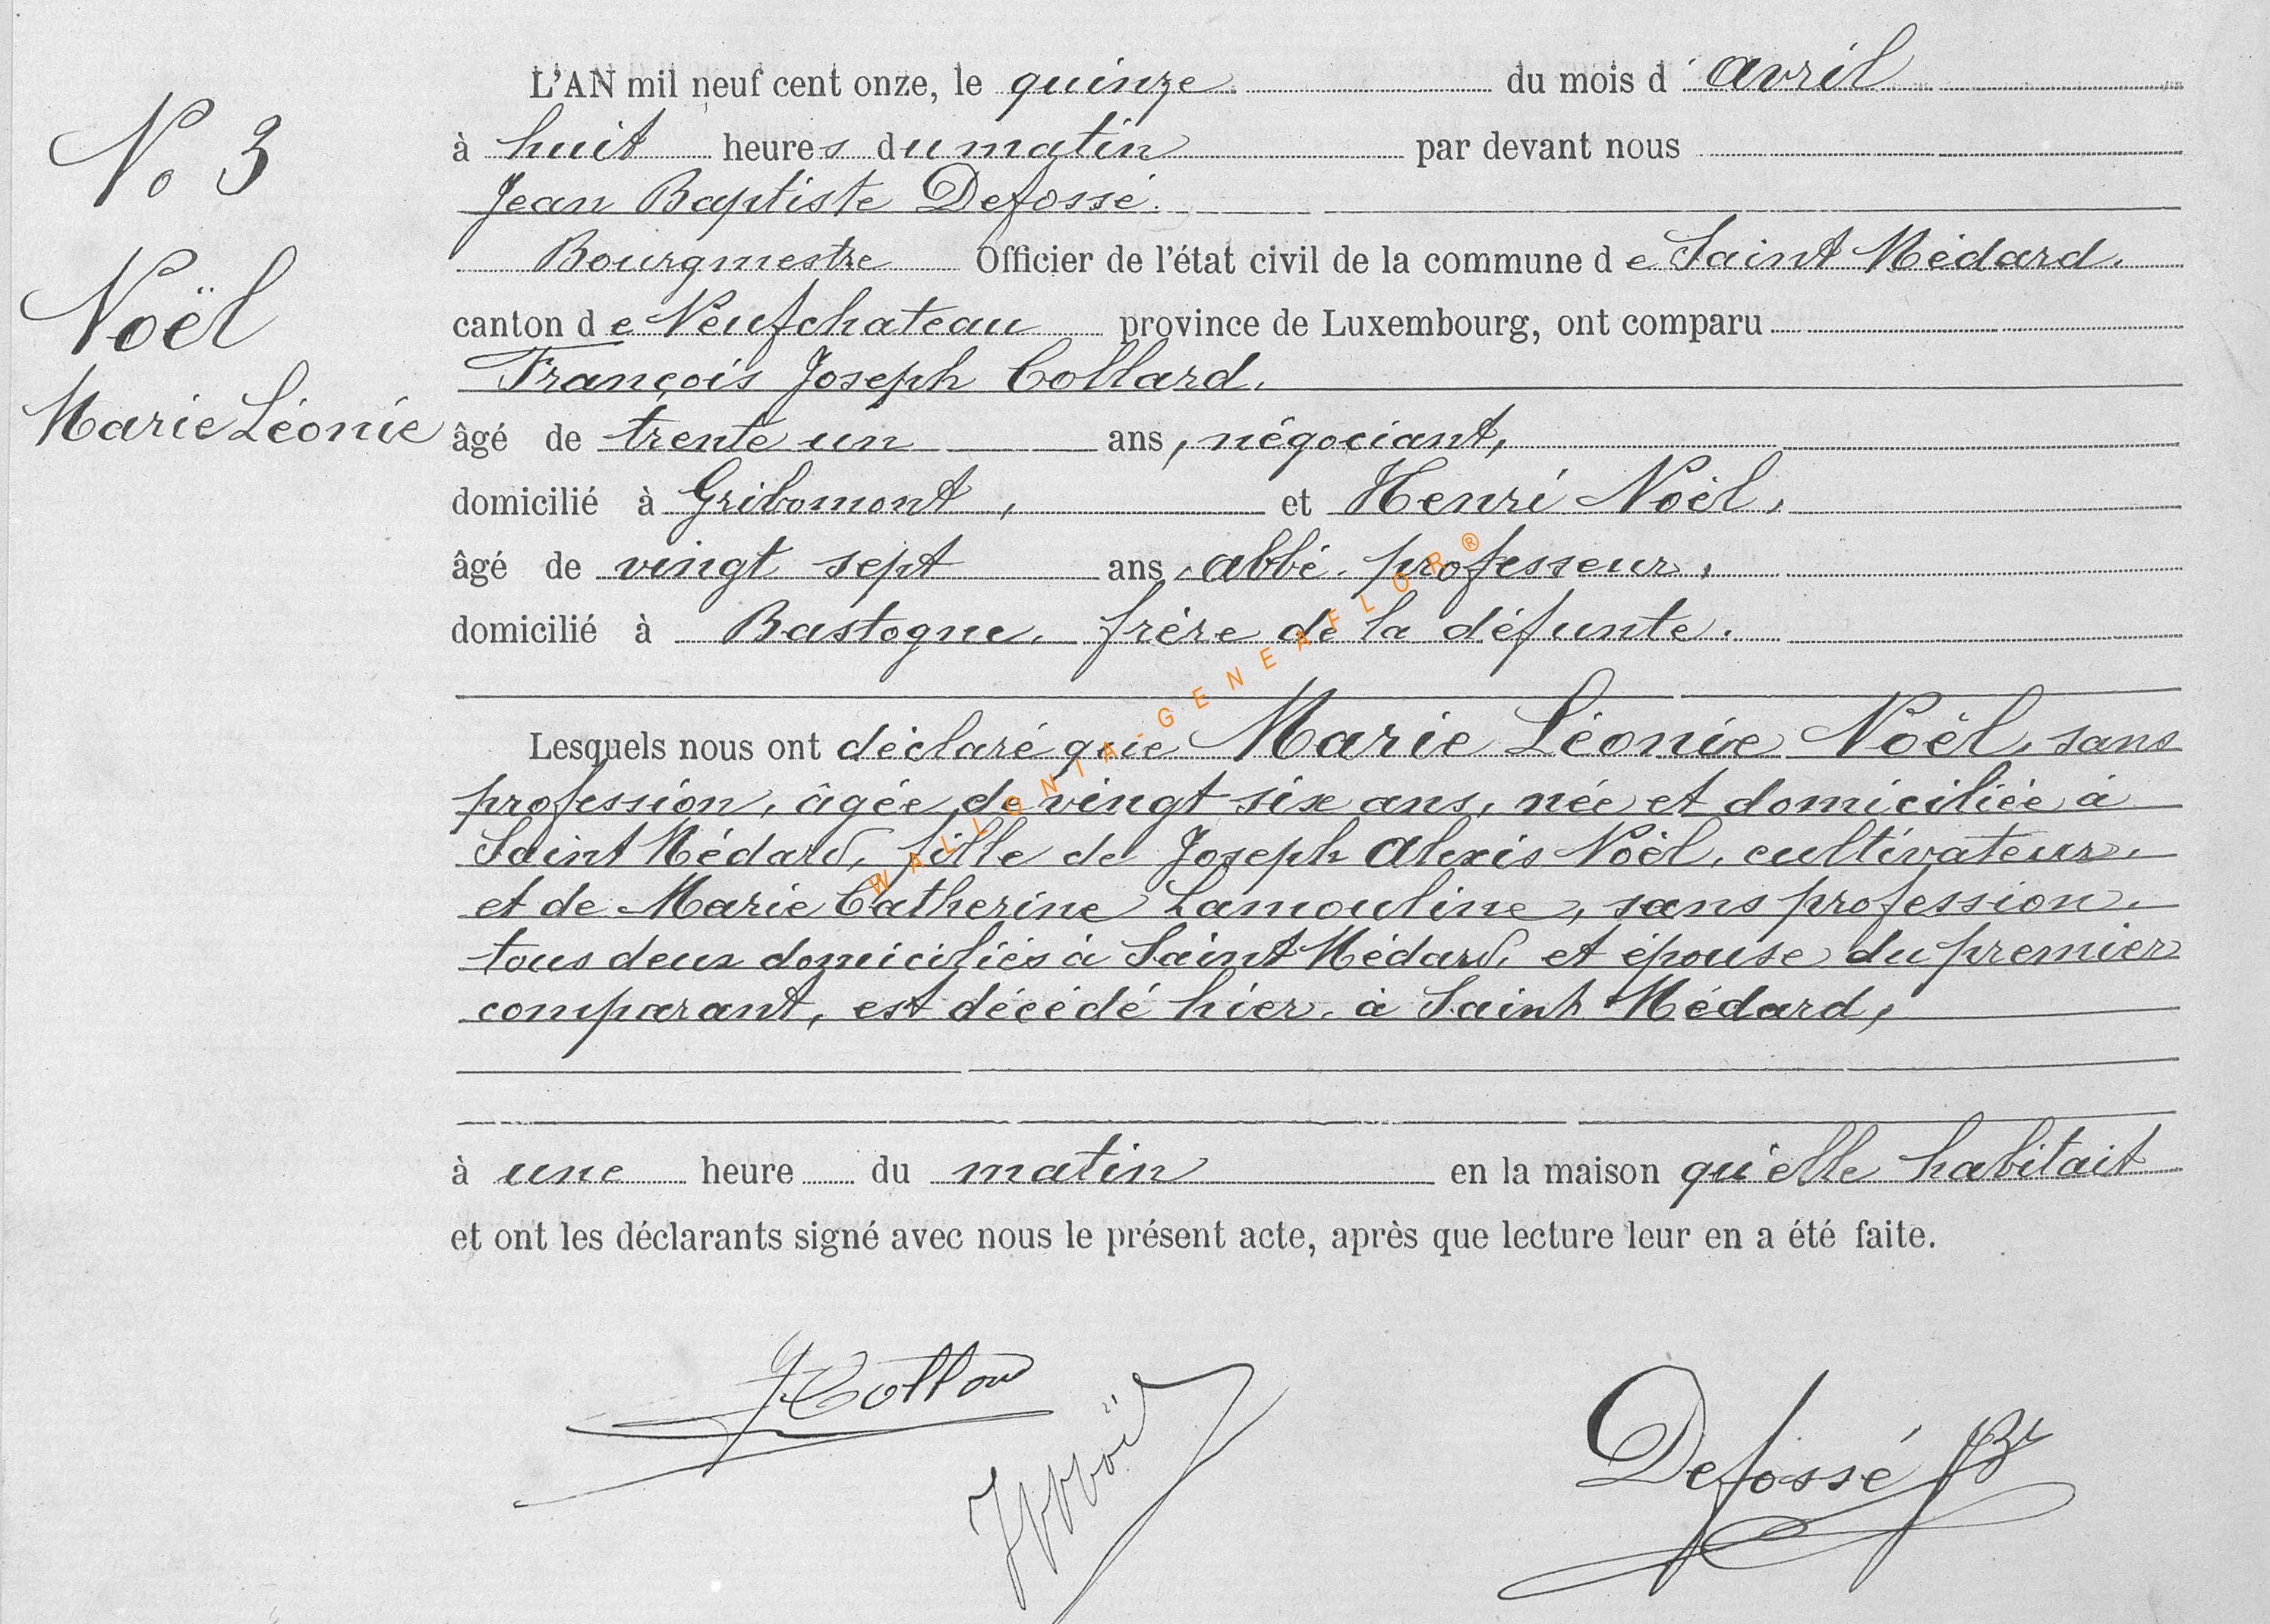 No 3
Noël
Marie Léonie
L'AN mil neuf cent onze, le quinze du mois d'avril
à huit heures du matin par devant nous
Jean Baptiste Defossé.
Bourgmestre Officier de l'état civil de la commune de Saint Médard.
canton de Neufchateau province de Luxembourg, ont comparu
François Joseph Collard.
âgé de trente un ans, négociant,
domicilié à Gribomont, et Henri Noël,
âgé de vingt sept ans, abbé. professeur,
domicilié à Bastogne. frère de la défunte.
Lesquels nous ont déclaré que Marie Léonie Noël, sans
profession, âgée de vingt six ans, née et domiciliée à
Saint Médard, fille de Joseph Alexis Noël, cultivateur,
et de Marie Catherine Lamouline, sans profession.
tous deux domiciliés à Saint Médard, et épouse du premier
comparant, est décédé hier. à Saint Médard,
à une heure du matin en la maison qu'elle habitait
et ont les déclarants signé avec nous le présent acte, après que lecture leur en a été faite.
Defossé
WALLONIA-GENEAFLOR®